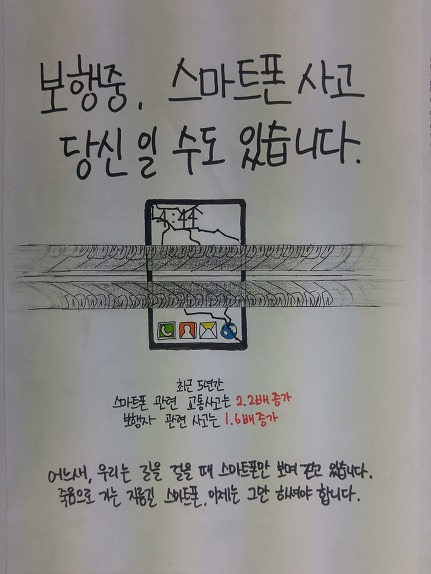 보행중, 스마트폰 사고
당신일 수도 있습니다.
4:44
최근 5년간
스마트폰 관련 교통사고는 2.2배 증가
보행자 관련 사고는 1.6배 증가
어느새, 우리는 길을 걸을 때 스마트폰만 보며 걷고 있습니다.
죽음으로 가는 지름길 스마트폰, 이제는 그만 하셔야 합니다.